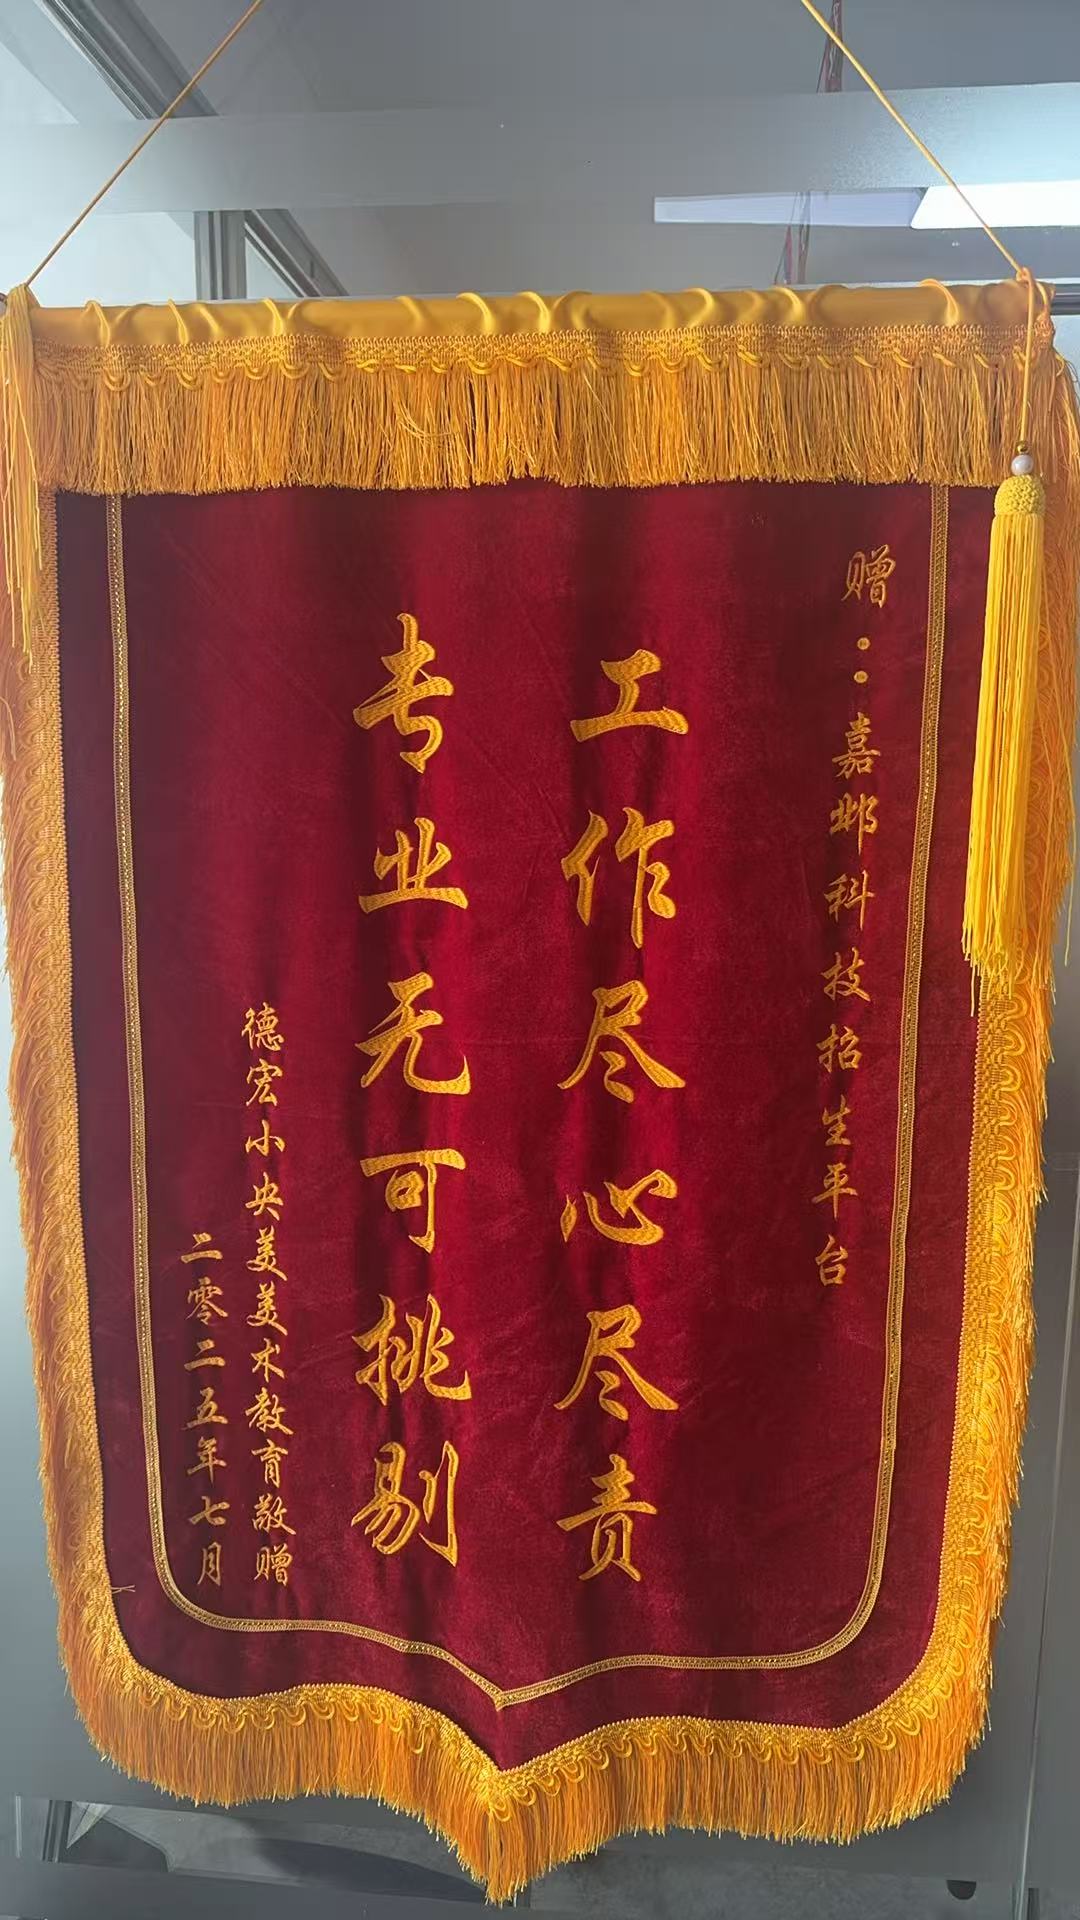 赠：嘉邺科技招生平台
工作尽心尽责
专业无可挑剔
德宏小央美美术教育敬赠
二零二五年七月